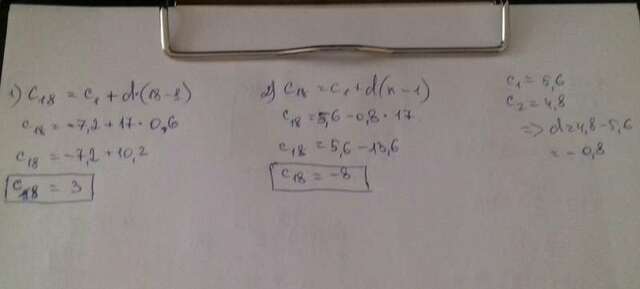 1) c₁₈ = c₁ + d·(18-1)
c₁₈ = -7,2 + 17 · 0,6
c₁₈ = -7,2 + 10,2
c₁₈ = 3
2) c₁₈ = c₁ + d(n-1)
c₁₈ = 5,6 - 0,8 · 17
c₁₈ = 5,6 - 13,6
c₁₈ = -8
c₁ = 5,6
c₂ = 4,8
=> d = 4,8 - 5,6
= -0,8